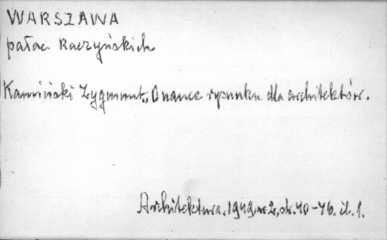 WARSZAWA
pałac Raczyńskich
Kamiński Zygmunt, O nauce rysunku dla architektów.
Architektura, 1949, nr 2, str. 40-46. il. 1.